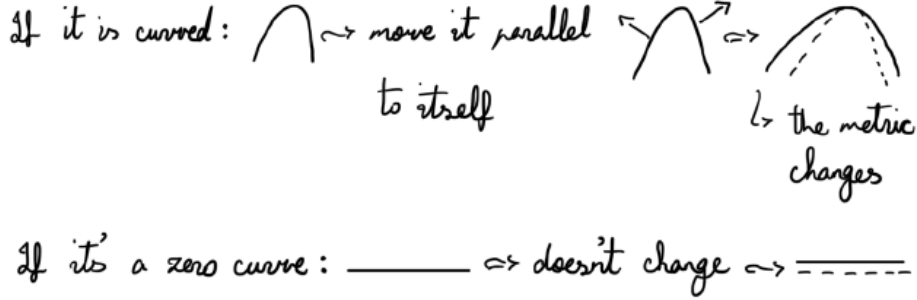 If it is curved: ⇝ move it parallel ⇔
to itself
↳ the metric
changes
If it's a zero curve: ⇔ doesn't change ⇝